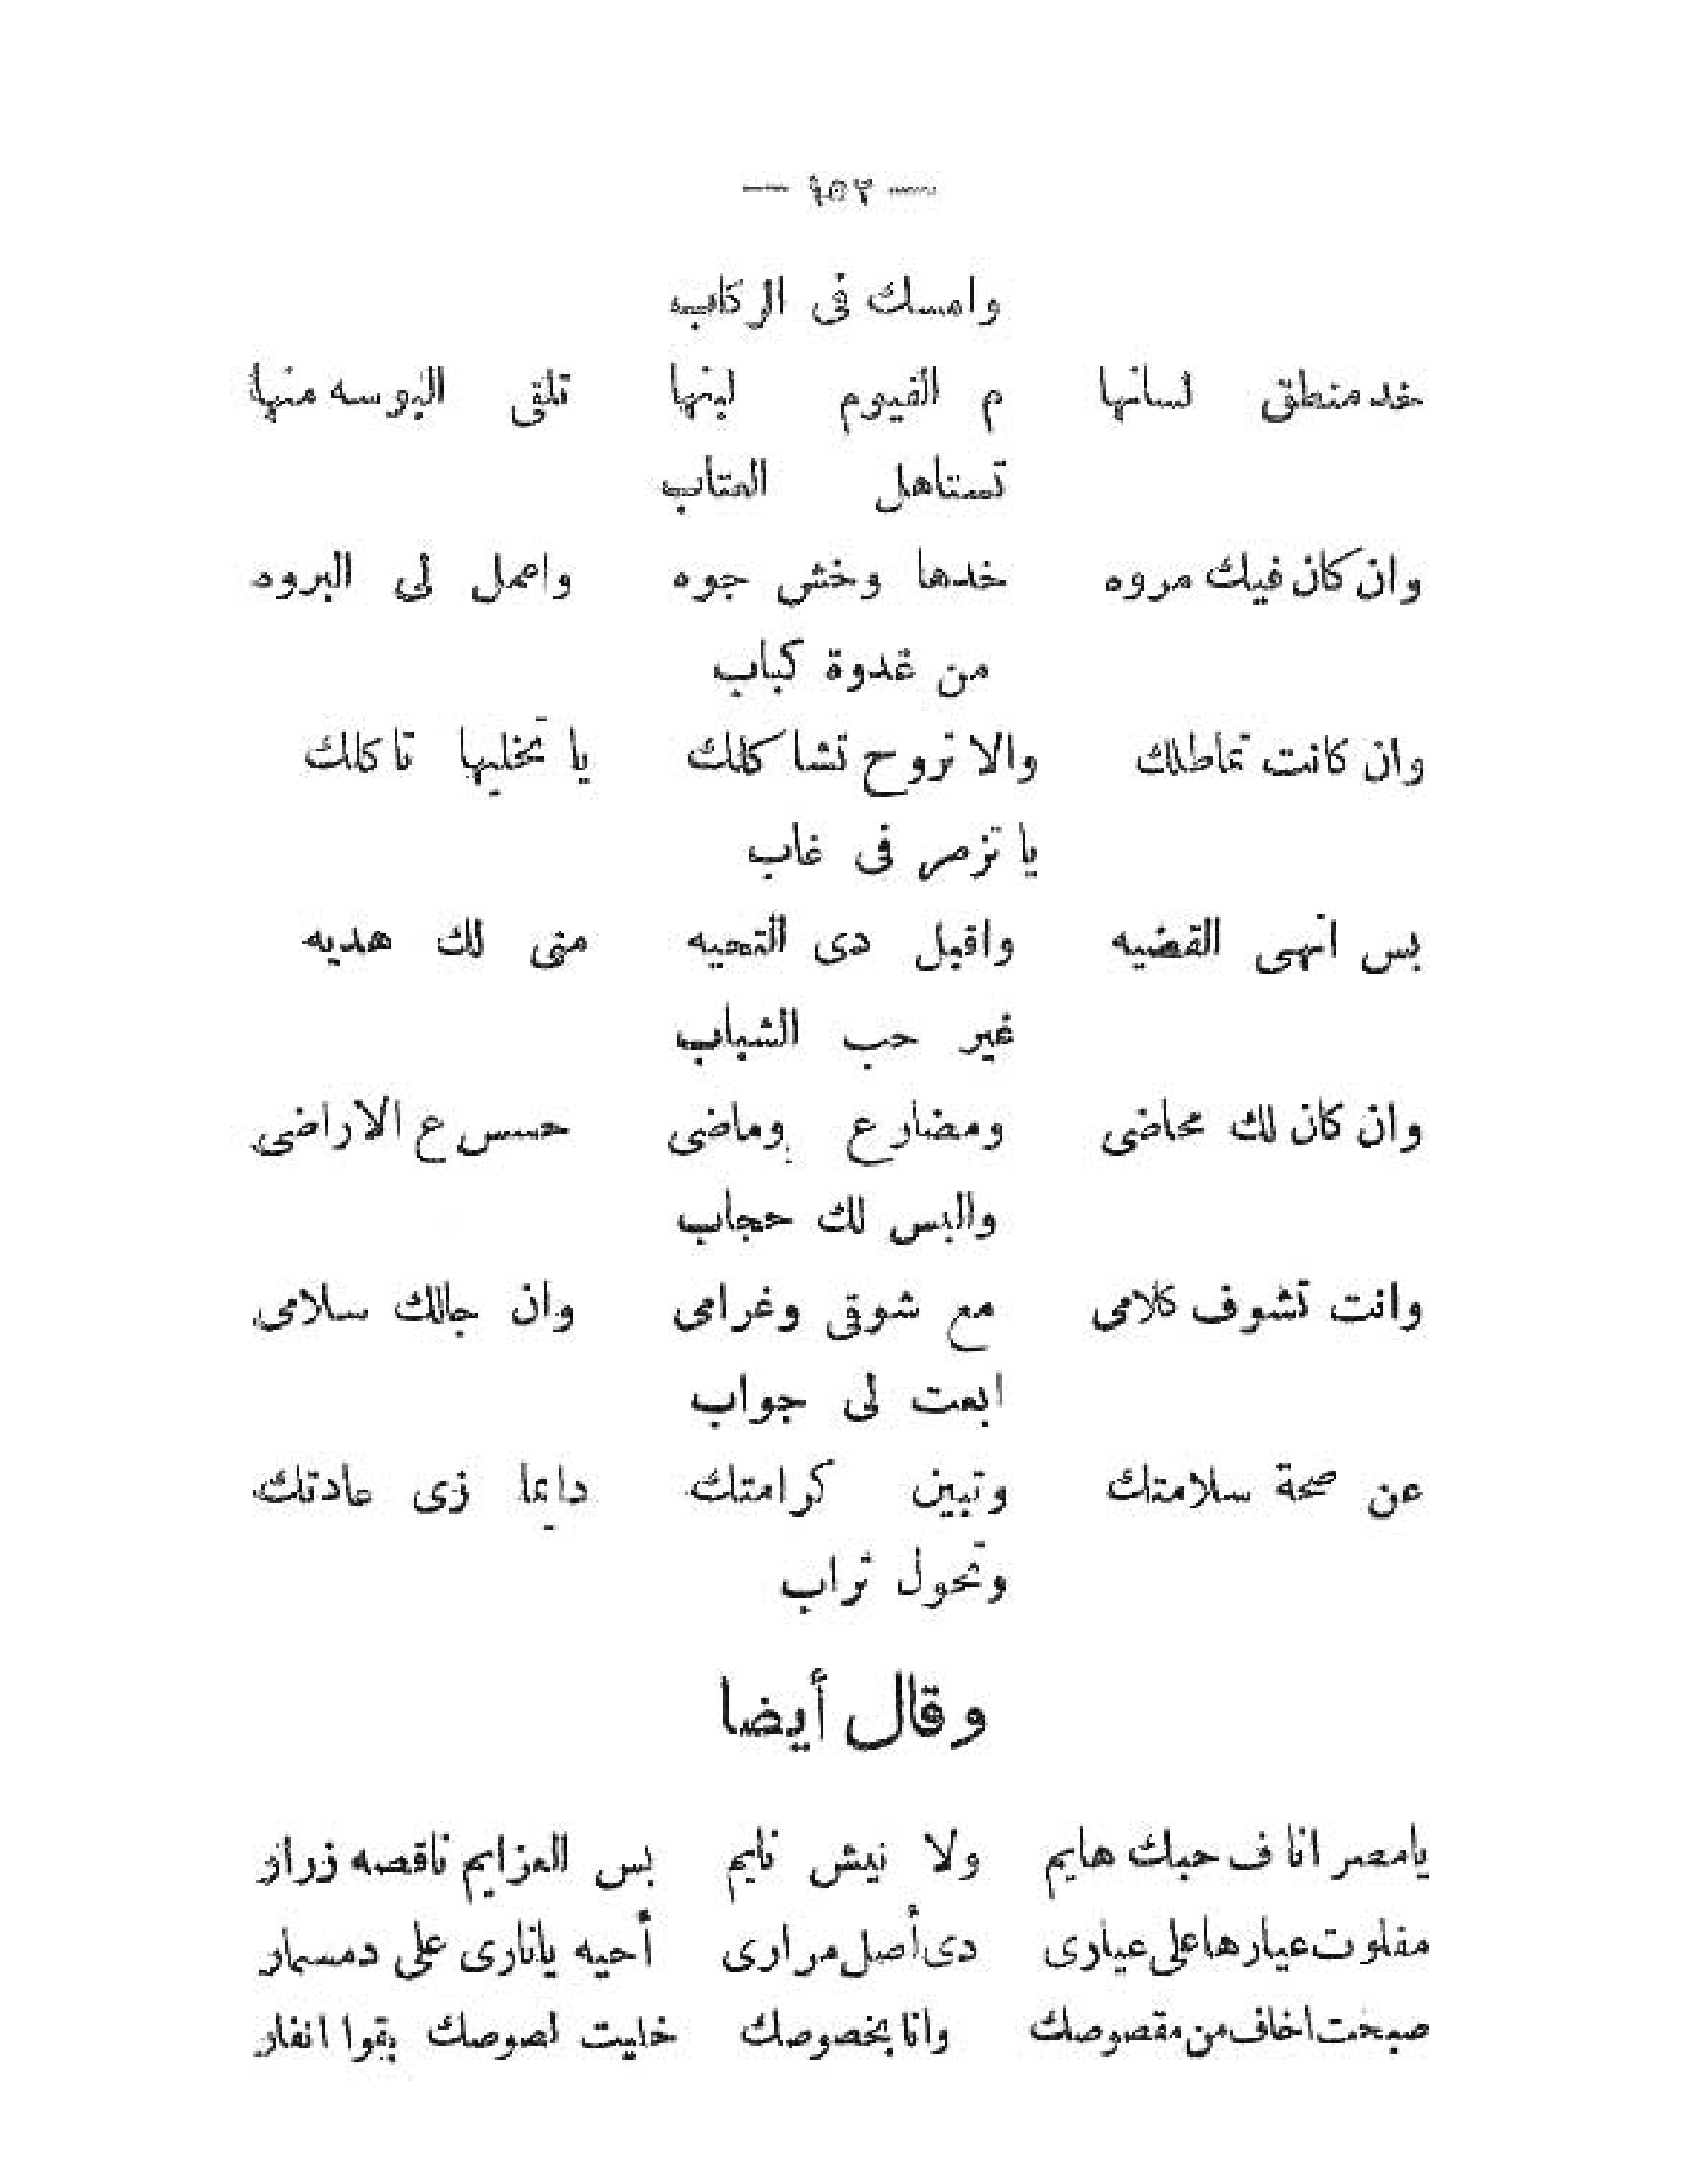 — ١٥٢ —
وامسك فى الركاب
خد منطق لسانها م الفيوم لبنها تلقى البوسه منها
تستاهل العتاب
وان كان فيك مروه خدها وخش جوه واعمل لى البروه
من غدوة كباب
وان كانت تماطلك والا تروح تشا كلك يا تخليها تا كلك
يا تزمر فى غاب
بس انهى القضيه واقبل دى التحيه منى لك هديه
غير حب الشباب
وان كان لك محاضى ومضارع وماضى حسس ع الاراضى
والبس لك حجاب
وانت تشوف كلامى مع شوقى وغرامى وان جالك سلامى
ابعت لى جواب
عن صحة سلامتك وتبين كرامتك دايما زى عادتك
وتحول تراب
وقال أيضا
يامصر انا ف حبك هايم ولا نيش نايم بس العزايم ناقصه زرار
مفلوت عيارها على عيارى دى أصل مرارى أحيه يانارى على دمسمار
صبحت اخاف من مقصوصك وانا بخصوصك خليت لصوصك بقوا انفار